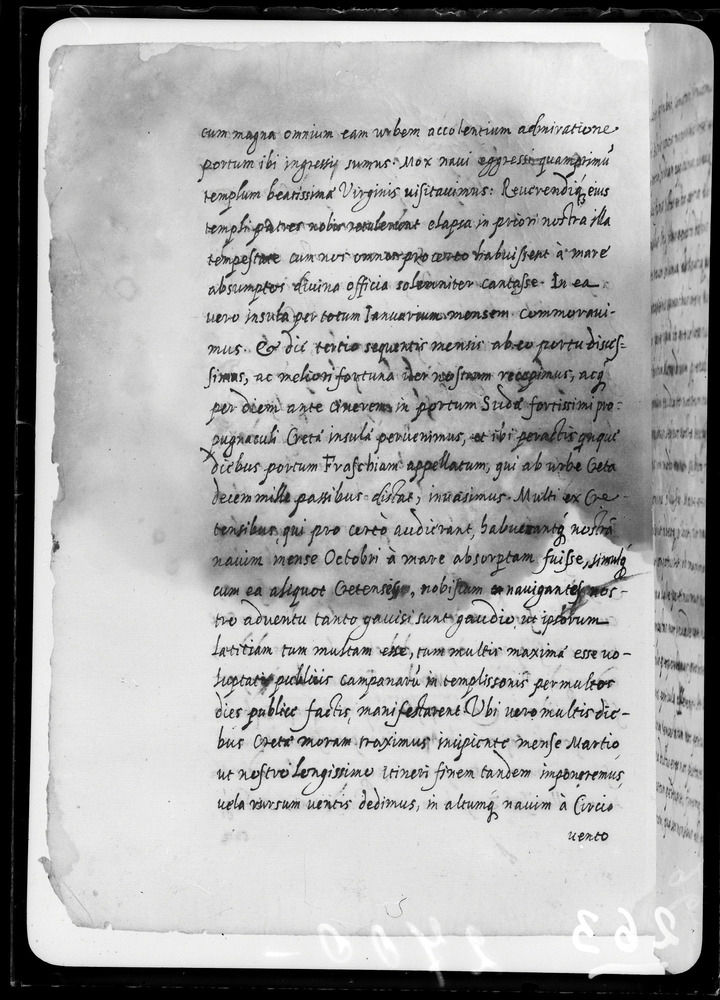 cum magna omnium eam urbem accolentium admiratione
portum ibi ingressi sumus. Mox navi eggressi quamprimũ
templum beatissimæ Virginis uisitauimus: Reuerendiq; eius
templi patres nobis retulerunt elapsa in priori nostra illa
tempestate cum nos omnes pro certo habuissent à mare
absumptos divina officia solemniter cantasse. In ea
vero insula per totum Ianuarium mensem commoraui-
mus. Et die tertio sequentis mensis ab eo portu disces-
simus, ac meliori fortuna iter nostrum recepimus, acq
per diem ante cinerem in portum Sudæ fortissimi pro-
pugnaculi Cretæ insulæ peruenimus, et ibi peractis
diebus portum Fraschiam appellatum, qui ab urbe Creta
decem mille passibus distat, inuasimus. Multi ex Cre-
tensibus, qui pro certo audierant, habuerantq; nostrã
nauim mense Octobri à mare absorptam fuisse, simulq
cum ea aliquot Cretenses, nobiscum navigantes nos-
tro adventu tanto gauisi sunt gaudio, ut ipsorum
lætitiam tum multam esse, tum multis maxima esse uo-
luptati publicis campanarũ in templis sonis per multos
dies publice factis, manifestarent. Ubi uero multis die-
bus Cretæ moram traximus, incipiente mense Martio
ut nostro longissimo itineri finem tandem imponeremus,
vela rursum ventis dedimus, in altumq; nauim à Circio
vento
2400 - 263